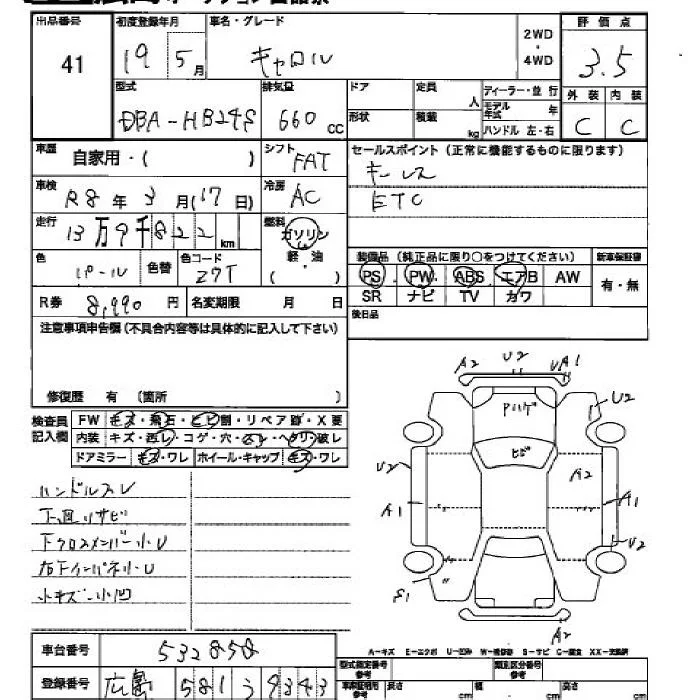 出品番号 初度登録年月 車名・グレード 評価点
41 19 5月 キャロル 2WD・4WD 3.5
型式 排気量 ドア 定員 人 ディーラー・並行 外装 内装
DBA-HB24S 660 cc 形状 積載 kg モデル年式 年 ハンドル 左・右 C C
車歴 自家用・( ) シフト FAT セールスポイント (正常に機能するものに限ります)
キーレス
車検 R8年3月(17日) 冷房 AC ETC
走行 13万9千822km 燃料 ガソリン 軽・油 ( )
装備品 (純正品に限り○をつけてください) 新車保証書
色 パール 色替 色コード Z7T PS PW ABS エアB AW 有・無
R券 8,990円 名変期限 月 日 SR ナビ TV カワ
注意事項申告欄 (不具合内容等は具体的に記入して下さい) 後日品
修復歴 有 (箇所 )
検査員記入欄 FW キズ・飛石・ヒビ割・リペア跡・X要
内装 キズ・汚レ・コゲ・穴・ ・ヘタリ・破レ
ドアミラー キズ・ワレ ホイール・キャップ キズ・ワレ
ハンドルスレ
下廻りサビ
下クロスメンバー小U
右下インパネ小U
小キズ・小凹
A2 U2 UA1
Pハゲ U2
ヒビ
U2 A2
A1 A1
U2
S1
A2
A-キズ E-エクボ U-凹み W-補修跡 S-サビ C-腐食 XX-交換済
車台番号 532850
登録番号 広島 581 う 9343
型式指定番号 参考 類別区分番号 参考
車庫証明用 参考 長さ cm 幅 cm 高さ cm